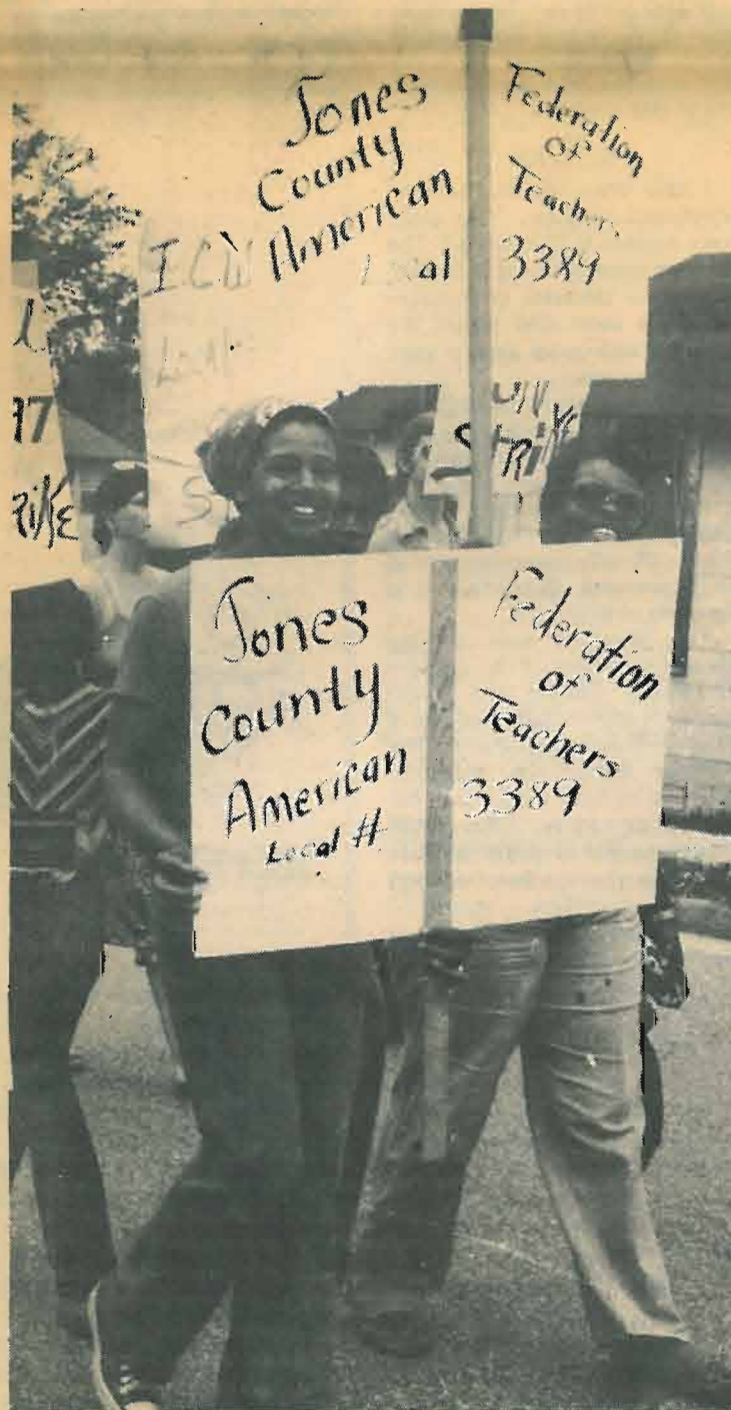 Jones
County
American
Federation
of
Teachers
3389
I.C.W
ON
STRIKE
17
RIKE
Jones
County
American
Local #
Federation
of
Teachers
3389